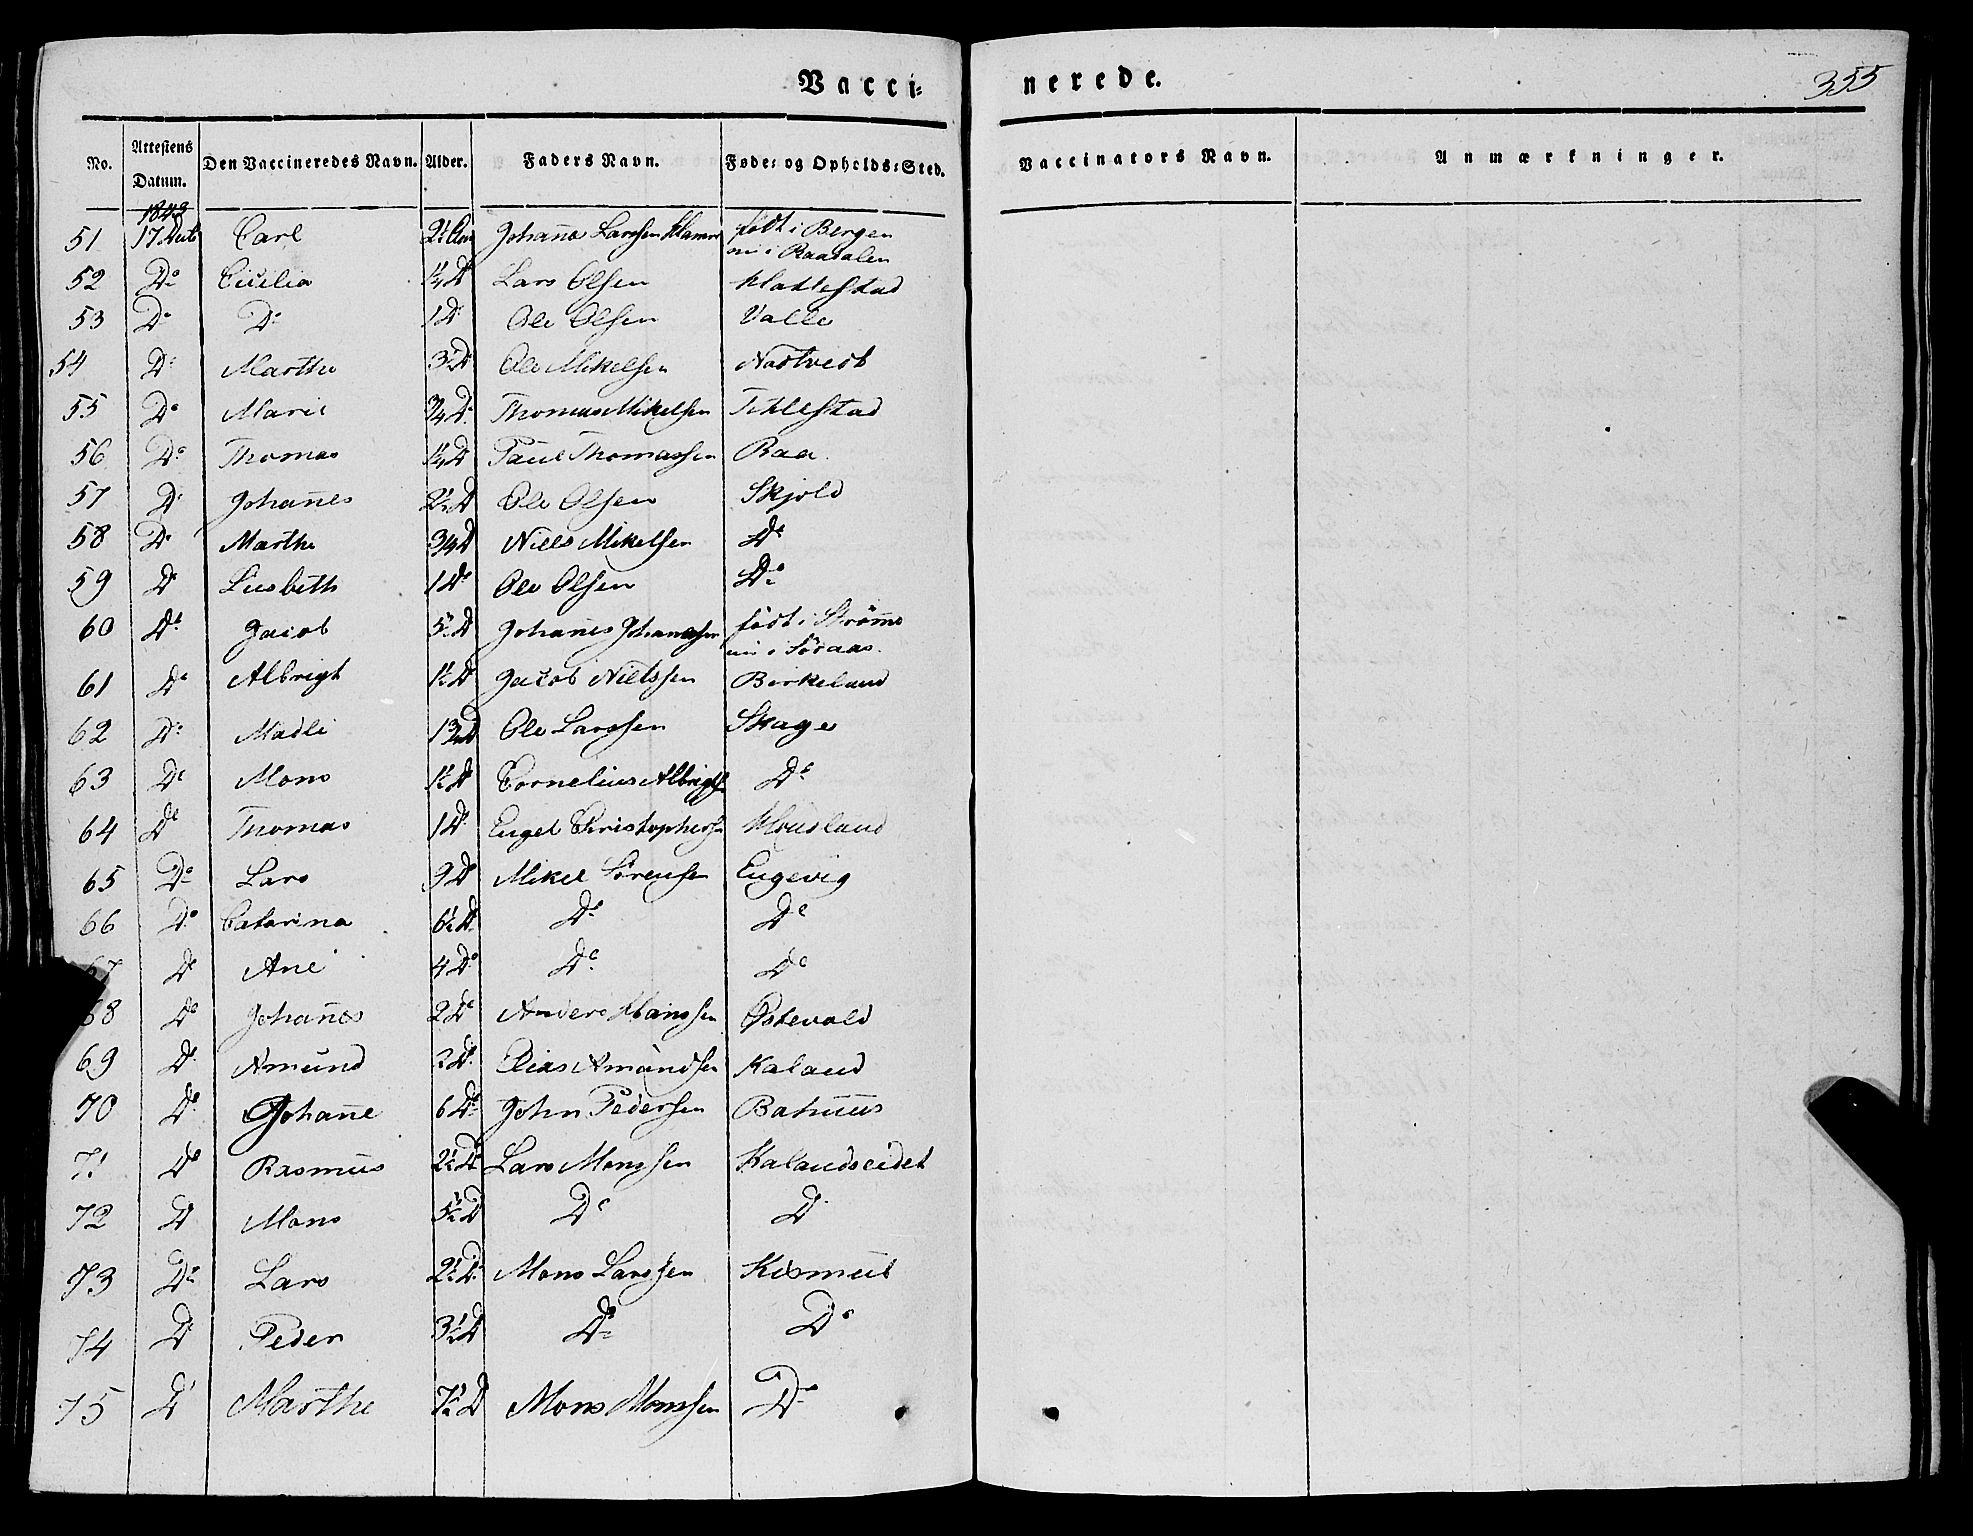 Vacci=
nerede.
355
No. Attestens Datum. Den Vaccineredes Navn. Alder. Faders Navn. Føde= og Opholds=Sted.
Vaccinators Navn. Anmærkninger.
1843
51 17 Carl 2½ Johannes Larssen født i Bergen
nu i Raadalen
52 Do Cicilia ¼ D Lars Olsen
53 Do Do 1 D Ole Olsen Valle
54 Do Marthe 3½ D Ole Mikelsen Nattvedt
55 Do Marie ¾ D Thomas Mikelsen
56 Do Thomas ¼ D Paul Thomassen Raa
57 Do Johannes 2½ D Ole Olsen Skjold
58 Do Marthe ¾ D Niels Mikelsen Do
59 Do Liesbeth 1 Do Ole Olsen Do
60 Do Jacob 5½ D Johanes Johannessen født i Strømme
nu i Søraas.
61 Do Albrigt 1½ D Jacob Nielssen Birkeland
62 Do Madli Ole Larssen Skage
63 Do Mons 1½ D Cornelius Albrigts Do
64 Do Thomas 1 D Engel Christophers
65 Do Lars 9 D Mikel Sørensen
66 Do Catarina 6½ D Do Do
67 Do Ane 4 Do Do Do
68 Do Johannes 2 Do Anders Hanssen Østevold
69 Do Amund D Elias Amundsen Kaland
70 Do Johanne 6 Do John Pedersen
71 Do Rasmus 2½ D Lars Monssen Kalandseidet
72 Do Mons 5½ D Do D
73 Do Lars 2½ D Mons Larssen Kismul
74 D Peder 3½ D Do Do
75 D Marthe 7½ D Mons Monssen Do